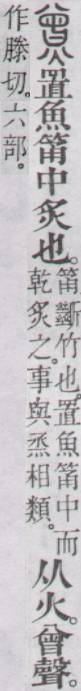 熷置魚筩中炙也。筩、斷竹也。置魚筩中而乾炙之。事與烝相類。从火。曾聲。
作滕切。六部。